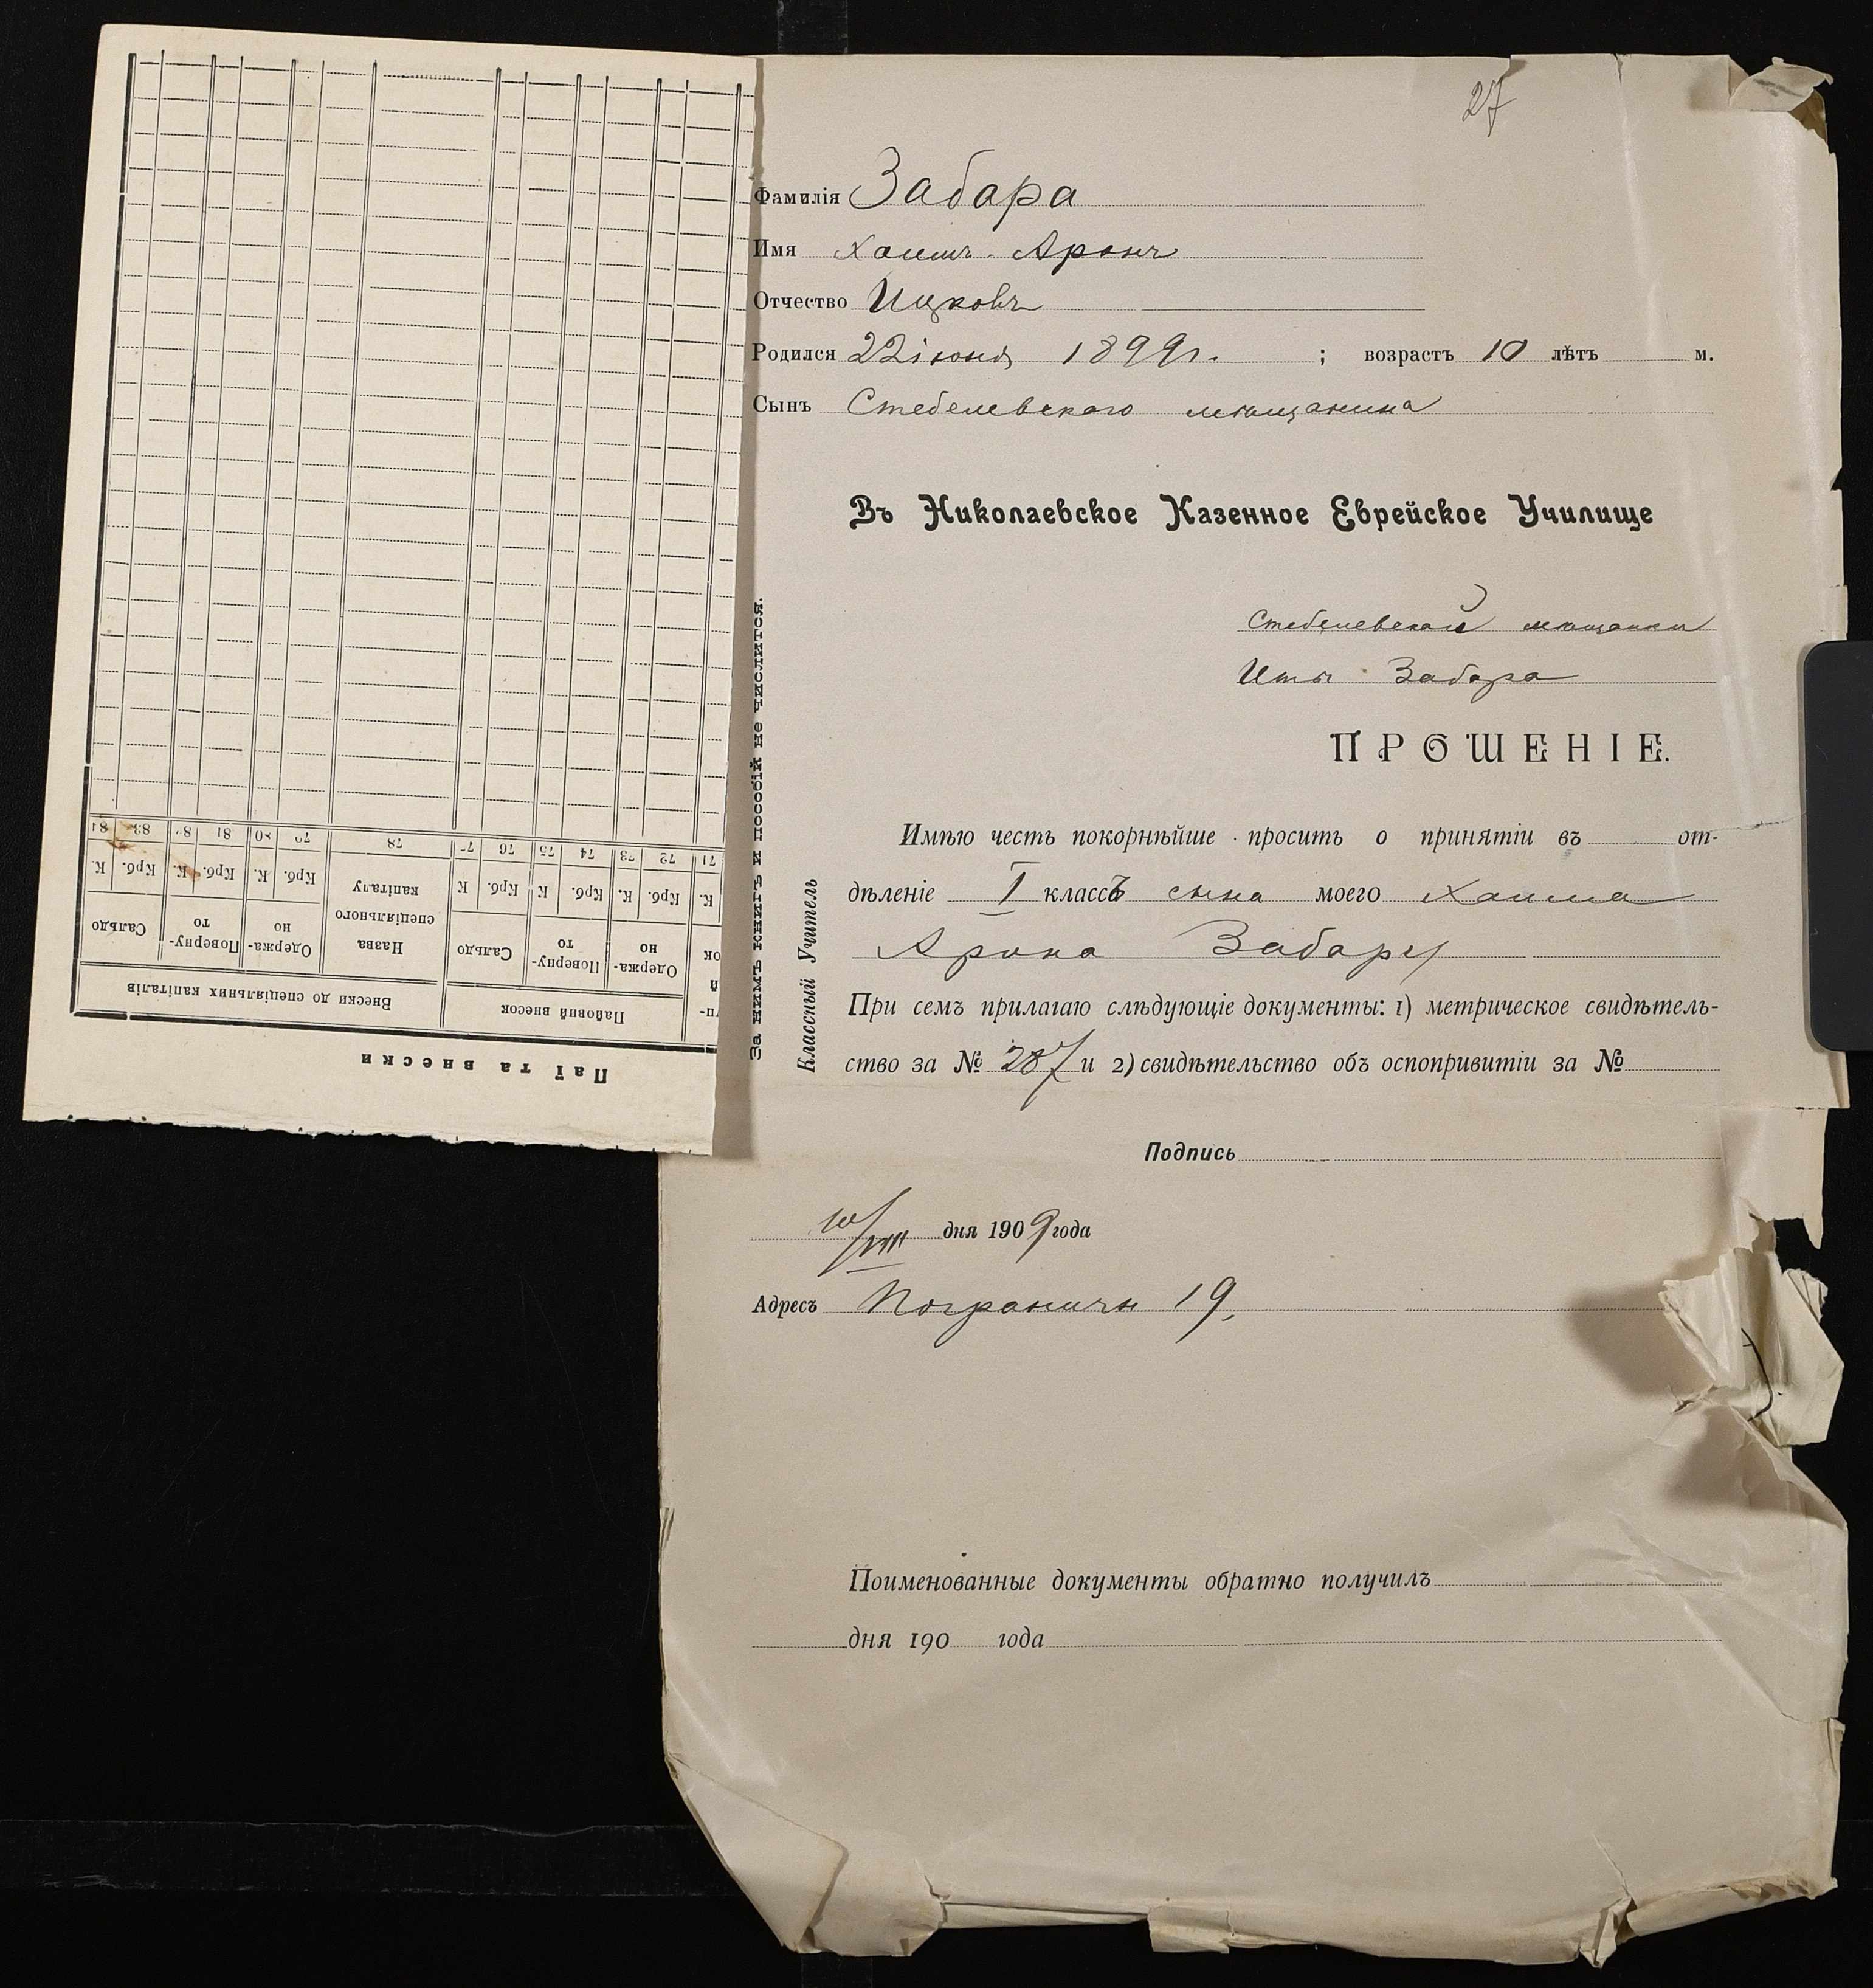 27
Фамилія Забара
Имя Хаимъ-Аронъ
Отчество Ицковъ
Родился 22 іюня 1899г. ; возрастъ 10 лѣтъ м.
Сынъ Стебелевского мѣщанина
Въ Николаевское Казенное Еврейское Училище
Стебелевской мѣщанки
Иты Забара
ПРОШЕНІЕ.
Имѣю честь покорнѣйше просить о принятіи въ от-
дѣленіе I классъ сына моего Хаима
Арона Забару
При семъ прилагаю слѣдующіе документы: 1) метрическое свидѣтель-
ство за № 287 и 2) свидѣтельство объ оспопривитіи за №
Подпись
10/VIII дня 1909 года
Адресъ Пограничн 19.
Поименованные документы обратно получилъ
дня 190 года
За нимъ книгъ и пособій не числится.
Классный Учитель
Паї та внески
Пайовий внесок
Внески до спеціяльних капіталів
ок
Одержа-
но
Поверну-
то
Сальдо
Назва
спеціяльного
капіталу
Одержа-
но
Поверну-
то
Сальдо
К. Крб. К. Крб. К Крб. К Крб. К. Крб. К. Крб. К
71 72 73 74 75 76 77 78 79 80 81 82 83 84